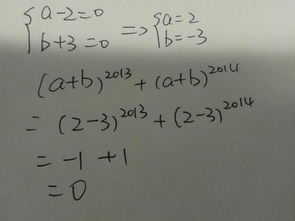 {a-2=0 => {a=2
{b+3=0 {b=-3
(a+b)^2013 + (a+b)^2014
= (2-3)^2013 + (2-3)^2014
= -1 +1
= 0